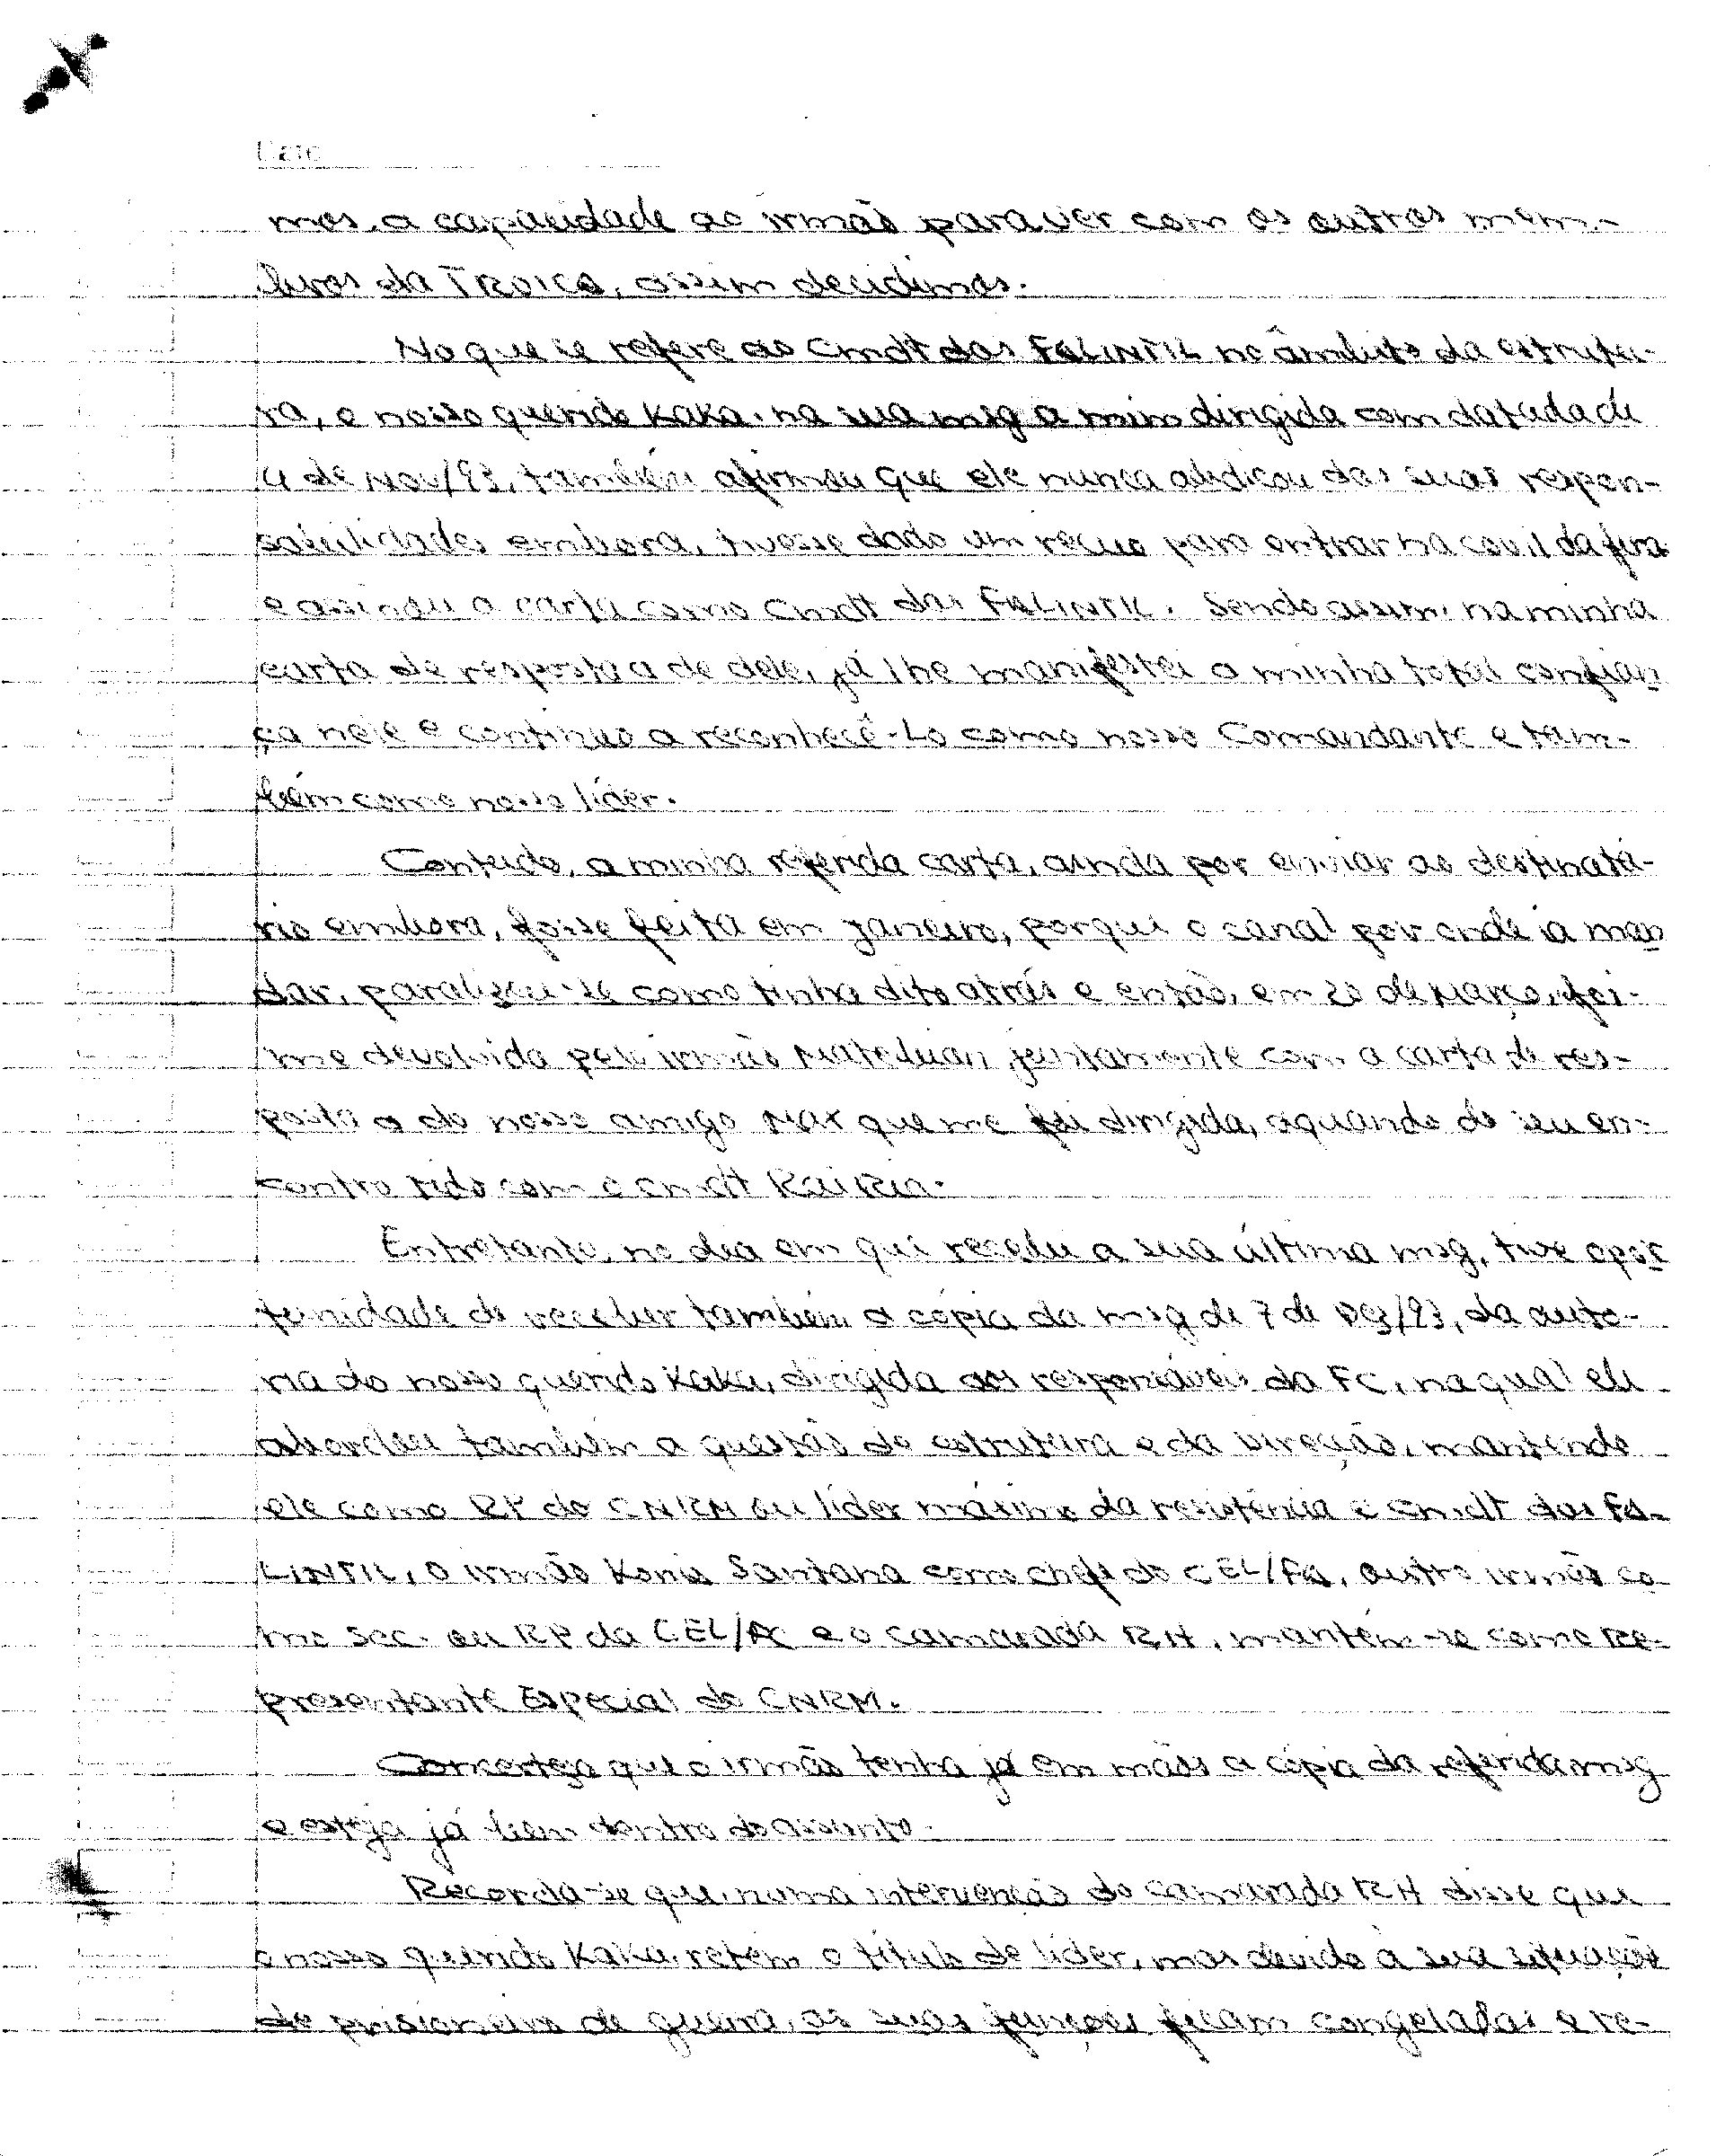 Date
mos, a capacidade ao irmão para ver com os outros mem-
bros da TROICA, assim decidimos.
No que se refere ao Cmdt das FALINTIL no âmbito da estrutu-
ra, o nosso querido Kaka, na sua msg a mim dirigida com data da de
4 de Nov/93, também afirmou que ele nunca abdicou das suas respon-
sabilidades embora, tivesse dado um recuo para entrar na covil da fera
e assinou a carta como Cmdt das FALINTIL. Sendo assim, na minha
carta de resposta a de dele, já lhe manifestei a minha total confian
ça nele e continuo a reconhecê-Lo como nosso Comandante e tam-
bém como nosso líder.
Contudo, a minha referida carta, ainda por enviar ao destinatá-
rio embora, fosse feita em janeiro, porque o canal por onde ia man
dar, paralizou-se como tinha dito atrás e então, em 20 de Março, foi-
me devolvida pelo irmão Mateduan, juntamente com a carta de res-
posta a do nosso amigo Max que me foi dirigida, aquando do seu en-
contro tido com o cmdt
Entretanto, no dia em que recebi a sua última msg, tive opor
tunidade de receber também a cópia da msg de 7 de Dez/93, da auto-
ria do nosso querido Kaka, dirigida aos responsáveis da FC, na qual ele
abordou também a questão da estrutura e da Direção, mantendo
ele como RP do CNRM ou líder máximo da resistência e cmdt das FA-
LINTIL, o irmão Konis Santana como chefe do CEL/FA, outro irmão co-
mo Sec. ou RP da CEL/FC e o camarada RH, mantém-se como Re-
presentante Especial do CNRM.
Comcerteza que o irmão tenha já em mãos a cópia da referida msg
e esteja já bem dentro do assunto.
Recorda-se que, numa intervenção do camarada RH disse que
o nosso querido Kaka, retem o título de líder, mas devido à sua situação
de prisioneiro de guerra, as suas funções ficam congeladas e re-